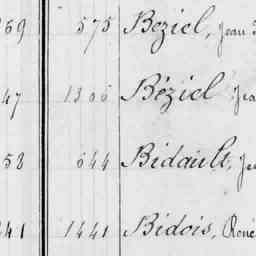 369 575 Beziel, Jean
47 1306 Béziel Jea
58 644 Bidault, Je
441 1441 Bidois, René